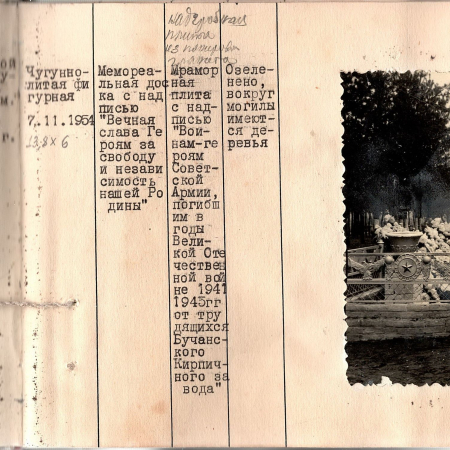 ой
у-
м."
г.
Чугунно-
литая фи
гурная
7.11.1954
13,8 х 6
Мемореа-
льная дос
ка с над
писью
"Вечная
слава Ге
роям за
свободу
и незави
симость
нашей Ро
дины"
надгробная
плита
Мрамор
ная
плита
с над-
писью
"Вои-
нам-ге
роям
Совет-
ской
Армии,
погибш
им в
годы
Вели-
кой Оте
чествен
ной вой
не 1941
1945гг
от тру
дящихся
Бучанс-
кого
Кирпич-
ного за
вода"
Озеле-
нено,
вокруг
могилы
имеют-
ся де-
ревья